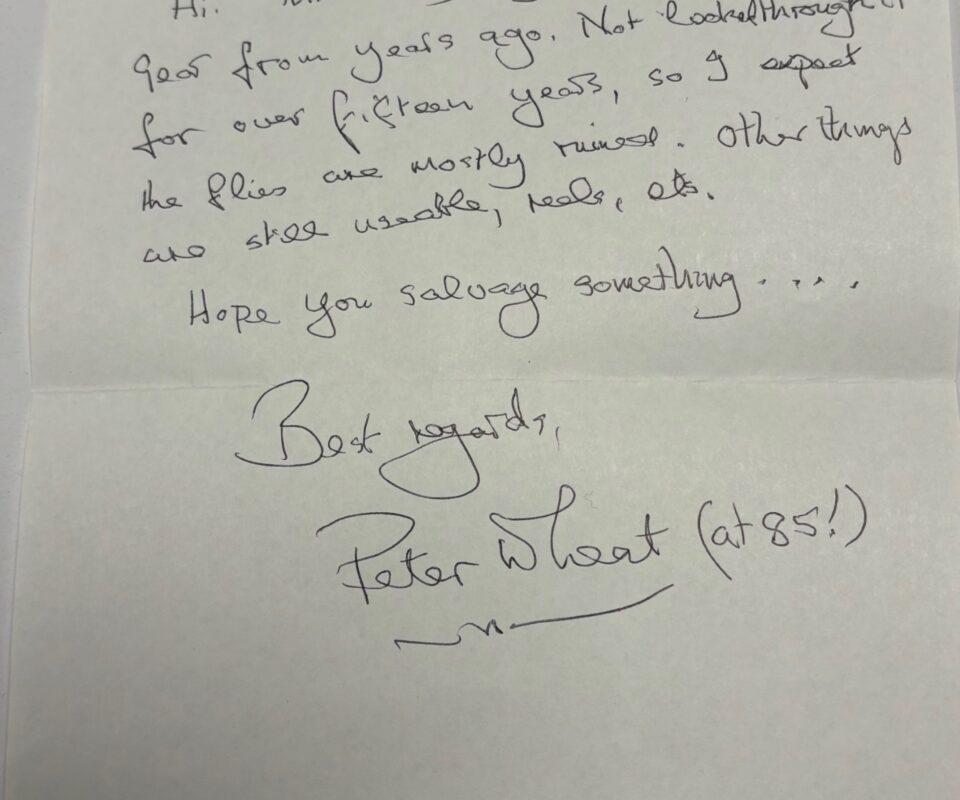 Hi.
gear from years ago. Not looked through it
for over fifteen years, so I expect
the flies are mostly ruined. Other things
are still useable, reels, etc.
Hope you salvage something.....
Best regards,
Peter Wheat (at 85!)